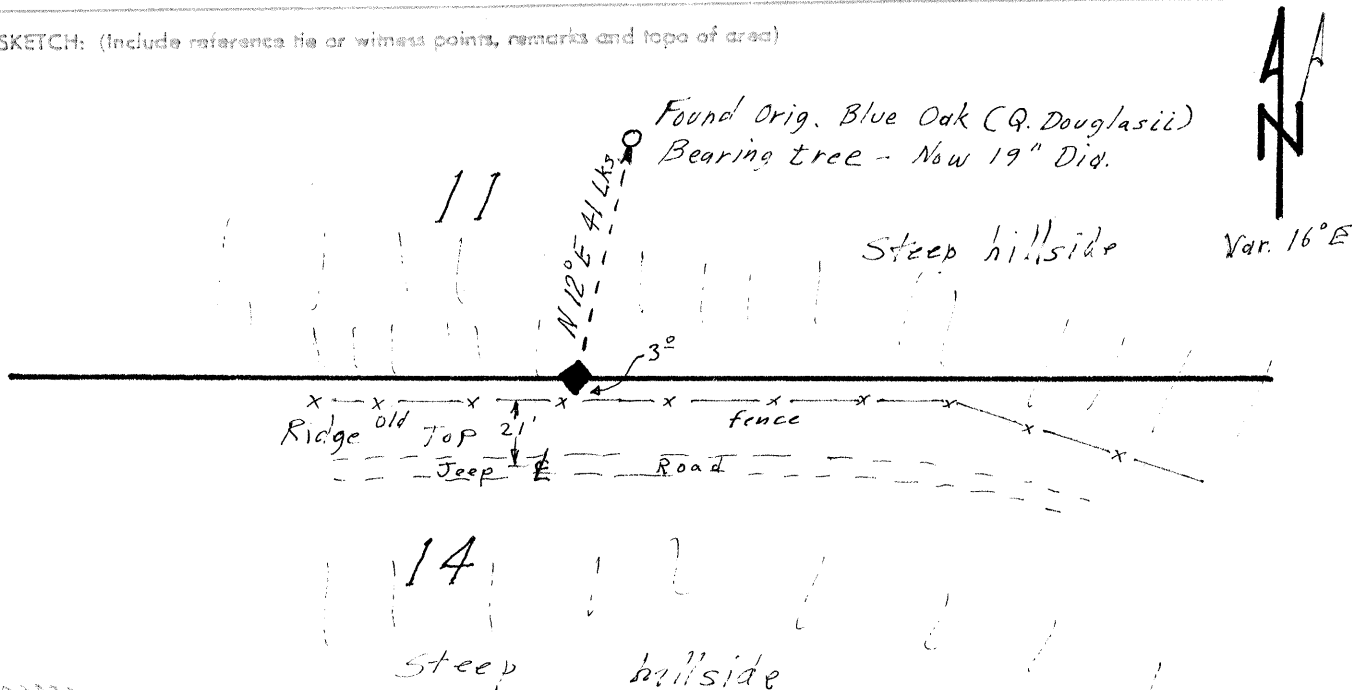 SKETCH: (Include reference tie or witness points, remarks and topo of area)
Found Orig. Blue Oak (Q. Douglasii)
Bearing tree - Now 19" Dia.
N
Var. 16°E
11
N 12°E 41 Lks
Steep hillside
3º
x x x x x x x x x x
Ridge Old Top 21' fence
Jeep ℄ Road
14
Steep hillside